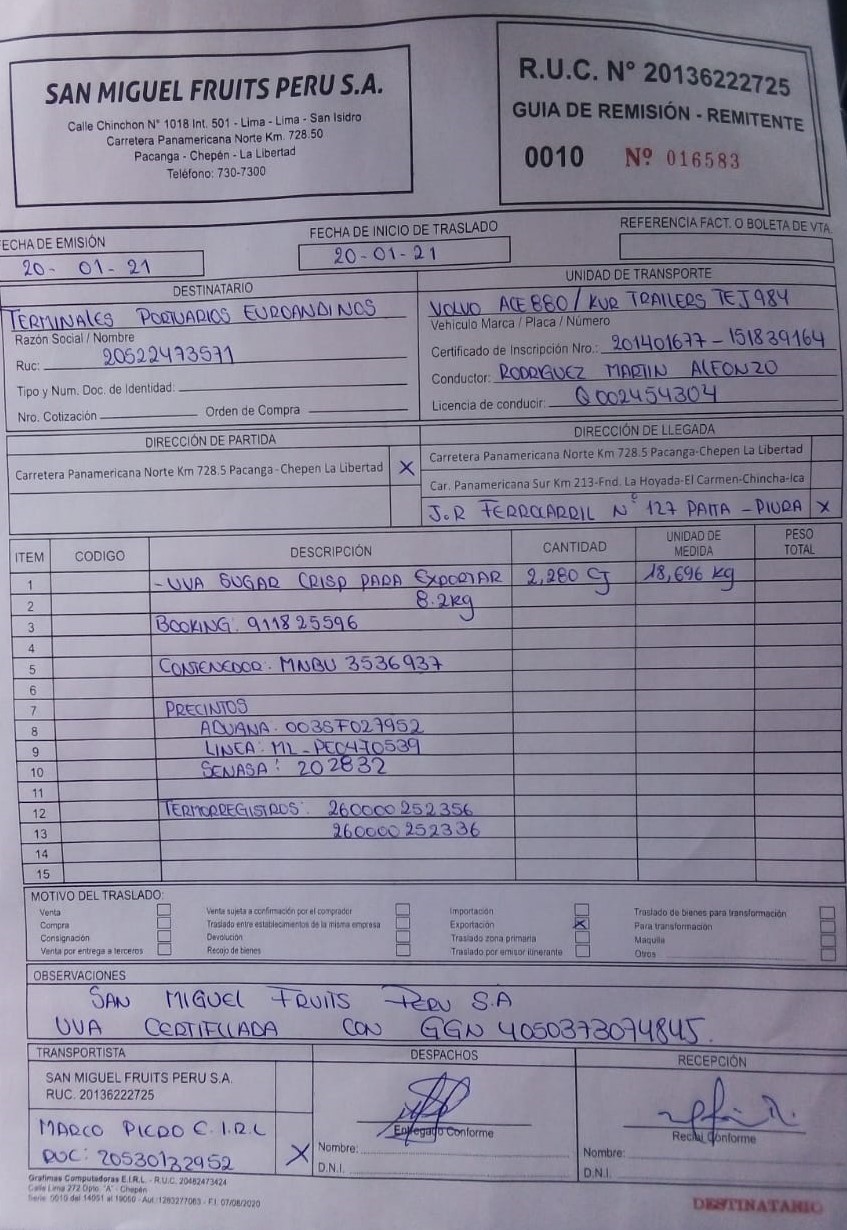 SAN MIGUEL FRUITS PERU S.A.
Calle Chinchon N° 1018 Int. 501 - Lima - Lima - San Isidro
Carretera Panamericana Norte Km. 728.50
Pacanga - Chepén - La Libertad
Teléfono: 730-7300
R.U.C. N° 20136222725
GUIA DE REMISIÓN - REMITENTE
0010 Nº 016583
FECHA DE EMISIÓN
20- 01-21
FECHA DE INICIO DE TRASLADO
20-01-21
REFERENCIA FACT. O BOLETA DE VTA.
DESTINATARIO
TERMINALES PORTUARIOS EUROANDINOS
Razón Social / Nombre
Ruc: 20522473571
Tipo y Num. Doc. de Identidad:
Nro. Cotización Orden de Compra
UNIDAD DE TRANSPORTE
VOLVO ACE 880 / KUR TRAILERS TEJ984
Vehículo Marca / Placa / Número
Certificado de Inscripción Nro.: 201401677-151839164
Conductor: RODRIGUEZ MARTIN ALFONZO
Licencia de conducir: Q002454304
DIRECCIÓN DE PARTIDA
Carretera Panamericana Norte Km 728.5 Pacanga-Chepen La Libertad X
DIRECCIÓN DE LLEGADA
Carretera Panamericana Norte Km 728.5 Pacanga-Chepen La Libertad
Car. Panamericana Sur Km 213-Fnd. La Hoyada-El Carmen-Chincha-Ica
J.R FERROCARRIL N° 127 PAITA - PIURA X
ITEM CODIGO DESCRIPCIÓN CANTIDAD UNIDAD DE MEDIDA PESO TOTAL
1 -UVA SUGAR CRISP PARA EXPORTAR 2,280 CJ 18,696 kg
2 8.2kg
3 BOOKING: 911825596
4
5 CONTENEDOR: MNBU 3536937
6
7 PRECINTOS
8 ADUANA: 0035F027952
9 LINEA: ML-PE0470539
10 SENASA: 202832
11
12 TERMORREGISTROS: 260000252356
13 260000252336
14
15
MOTIVO DEL TRASLADO:
Venta
Compra
Consignación
Venta por entrega a terceros
Venta sujeta a confirmación por el comprador
Traslado entre establecimientos de la misma empresa
Devolución
Recojo de bienes
Importación
Exportación X
Traslado zona primaria
Traslado por emisor itinerante
Traslado de bienes para transformación
Para transformación
Maquila
Otros
OBSERVACIONES
SAN MIGUEL FRUITS PERU S.A
UVA CERTIFICADA CON GGN 4050373074845.
TRANSPORTISTA
SAN MIGUEL FRUITS PERU S.A.
RUC. 20136222725
MARCO PICRO C.I.R.L
RUC: 20530132952 X
DESPACHOS
Entregado Conforme
Nombre:
D.N.I.
RECEPCIÓN
Recibí Conforme
Nombre:
D.N.I.
Grafimas Computadoras E.I.R.L. - R.U.C. 20482473424
Calle Lima 272 Dpto. "A" - Chepén
Serie 0010 del 14051 al 19050 - Aut. 1283277063 - F.I. 07/08/2020
DESTINATARIO